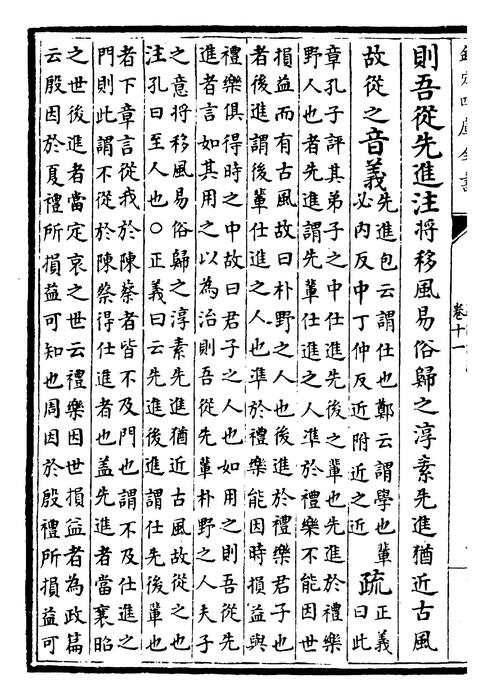 欽定四庫全書
卷十一
則吾從先進注將移風易俗歸之淳素先進猶近古風
故從之音義先進包云謂仕也鄭云謂學也輩
必內反中丁仲反近附近之近
疏正義
曰此
章孔子評其弟子之中仕進先後之輩也先進於禮樂
野人也者先進謂先輩仕進之人準於禮樂不能因世
損益而有古風故曰朴野之人也後進於禮樂君子也
者後進謂後輩仕進之人也準於禮樂能因時損益與
禮樂俱得時之中故曰君子之人也如用之則吾從先
進者言如其用之以為治則吾從先輩朴野之人夫子
之意將移風易俗歸之淳素先進猶近古風故從之也
注孔曰至人也○正義曰云先進後進謂仕先後輩也
者下章言從我於陳蔡者皆不及門也謂不及仕進之
門則此謂不從於陳蔡得仕進者也蓋先進者當襄昭
之世後進者當定哀之世云禮樂因世損益者為政篇
云殷因於夏禮所損益可知也周因於殷禮所損益可